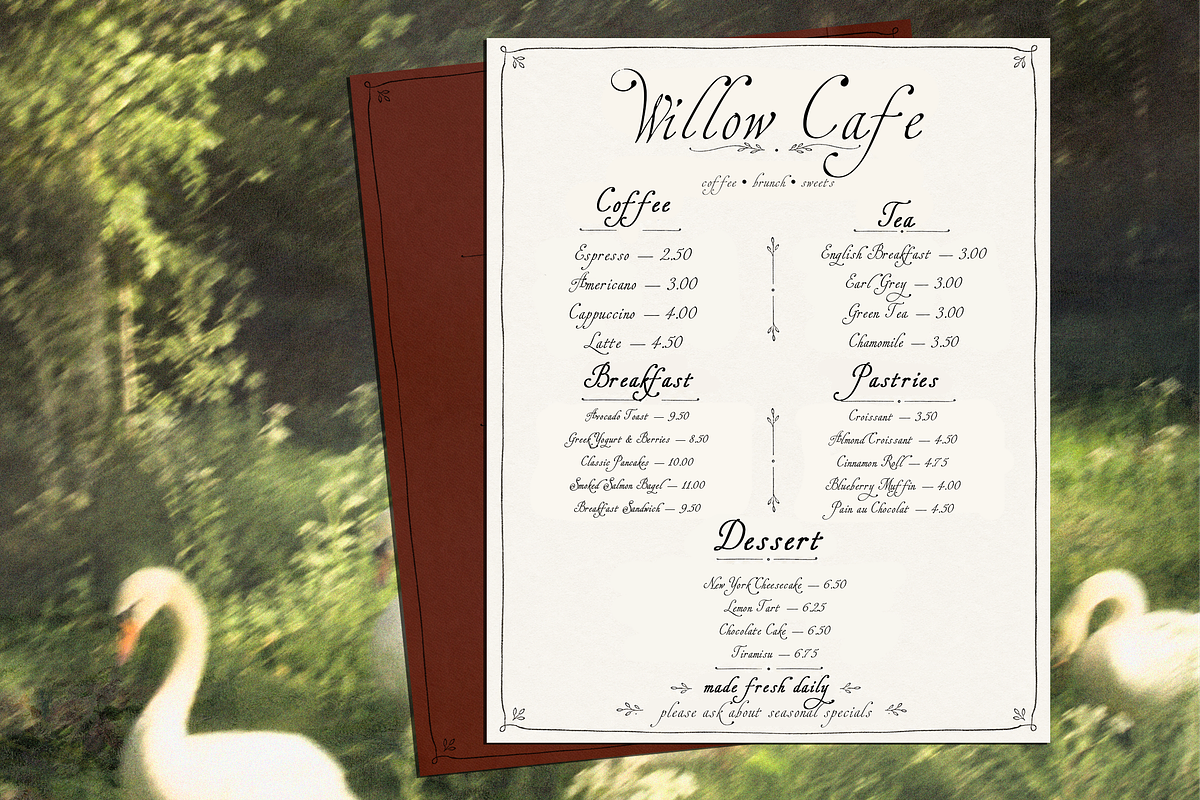 Willow Cafe
coffee • brunch • sweets
Coffee
Espresso — 2.50
Americano — 3.00
Cappuccino — 4.00
Latte — 4.50
Tea
English Breakfast — 3.00
Earl Grey — 3.00
Green Tea — 3.00
Chamomile — 3.50
Breakfast
Avocado Toast — 9.50
Greek Yogurt & Berries — 8.50
Classic Pancakes — 10.00
Smoked Salmon Bagel — 11.00
Breakfast Sandwich — 9.50
Pastries
Croissant — 3.50
Almond Croissant — 4.50
Cinnamon Roll — 4.75
Blueberry Muffin — 4.00
Pain au Chocolat — 4.50
Dessert
New York Cheesecake — 6.50
Lemon Tart — 6.25
Chocolate Cake — 6.50
Tiramisu — 6.75
made fresh daily
please ask about seasonal specials